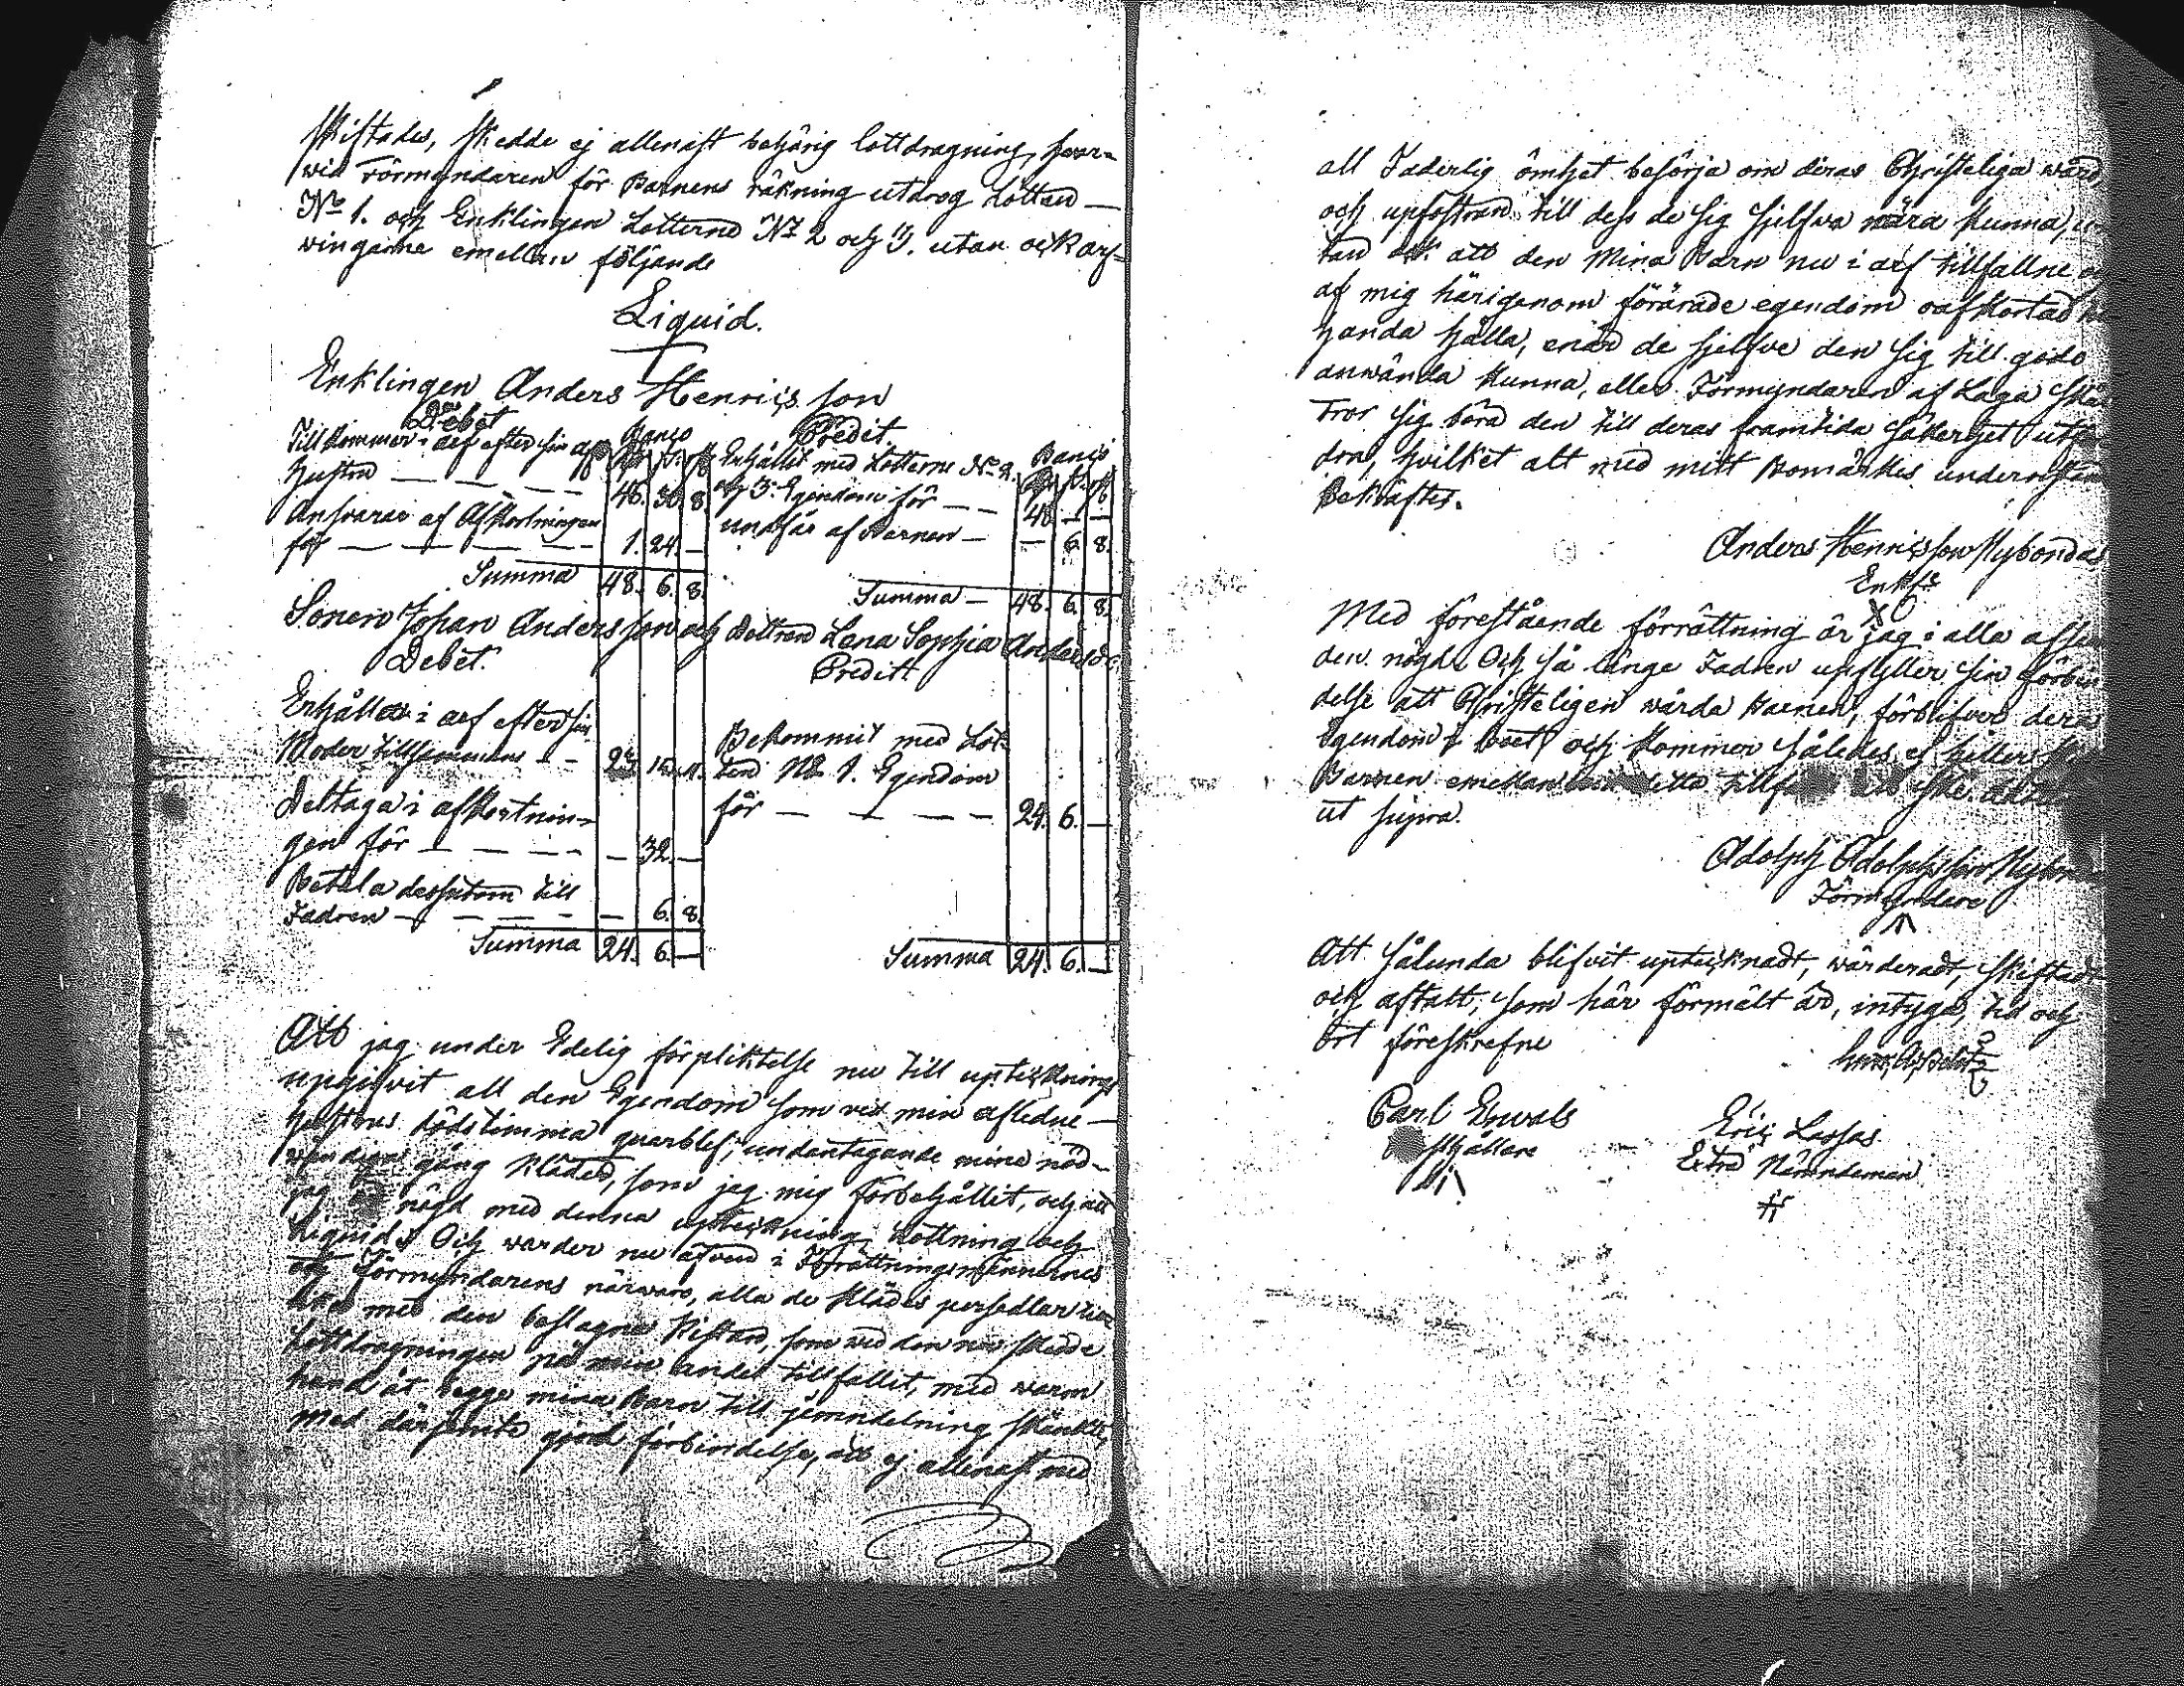 skiftades, skedde ej allenast behörig lottdragning, hvar-
vid Förmyndaren för Barnens räkning utdrog Lotten
No 1. och Enklingen Lotterne No 2 och 3. utan ock arf-
vingarne emellan följande
Liquid.
Enklingen Anders Henricsson
Debet
Credit.
Tillkommer i arf efter sin
Banco
Hustru — — — — 46. 30. 8.
Ansvarar af Afkortningen
för — — — — — 1. 24. —
Summa 48. 6. 8.
Erhållit med Lotterne No 2.
Banco
och 3. Egendom för — — 48. — —
undfår af Barnen — — 6. 8.
Summa — 48. 6. 8.
Sonen Johan Andersson och Dottren Lena Sophia
Debet.
Credit
Erhåller i arf efter sin
Moder tillsammans — —
Deltaga i afkortnin-
gen för — — — — — 32. —
Betala dessutom till
Fadren — — — — — 6. 8.
Summa 24. 6. —
Bekommit med Lot-
ten No 1. Egendom
för — — — — 24. 6. —
Summa 24. 6. —
Att jag under Edelig förpliktelse nu till upteckning
upgifvit all den Egendom som vid min afledne
hustrus dödstimma qvarblef, undantagande mine nöd-
vändiga gång kläder, som jag mig förbehållit, och att
jag nögd med denna upteckning, Lottning och
Liquid. Och varder nu äfven i Förrättningsmännernes
och Förmyndarens närvaro, alla de Klädes persedlar
med den beslagne Kistan, som ved den nu skedde
Lottdragningen på min andel tillfallit, med varm
hand åt begge mina Barn till jemndelning skänkte,
med därjemte gjord förbindelse, att ej allenast med
all Faderlig ömhet besörja om deras Christeliga vård
och upfostran till dess de sig sjelfva nära kunna,
tan ock att den Mina Barn nu i arf tillfallne
af mig härigenom förärade egendom oafkortad
handa hålla, enär de sjelfve den sig till godo
använda kunna, eller Förmyndaren af Laga
tror sig böra den till deras framtida säkerhet
dra, hvilket allt med mitt Bomärkes
Bekräftes.
Anders Henricsson Nybondas
Enkl:
Med förestående förrättning är jag i alla
den nögd. Och så länge Fadren upfyller sin
delse att Christeligen vårda Barnen, förblifver
Egendom i boet och kommer således ej heller
Barnen emellan
ut supra.
Adolph Adolphsson
Förmyndare
Att sålunda blifvit uptecknadt, värderadt, skiftadt
och aftalt, som här förmält är, intyga, tid och
ort föreskrefne
Carl Envals
Eric Lassas
Extra Nämndeman